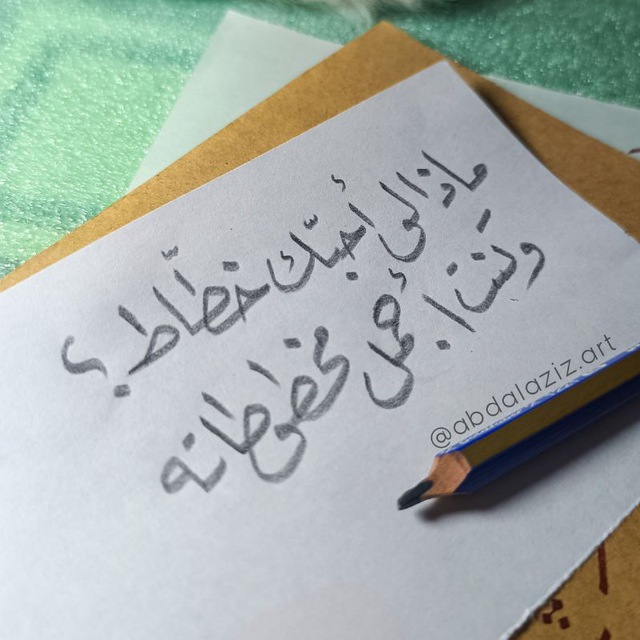 ماذا لو أحبّك خطّاط ؟
وكنت أجمل مخطوطاته
@abdalaziz.art